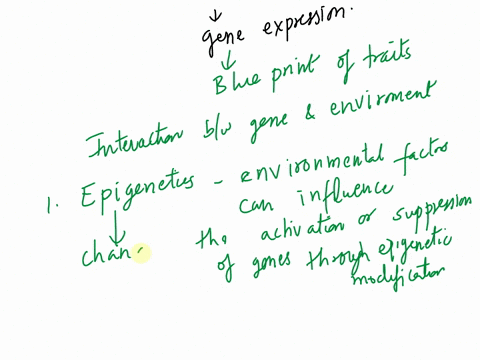 gene expression.
Blue print of traits
Interaction b/w gene & enviroment
1. Epigenetics - environmental factors
can influence
the activation or suppression
of genes through epigenetic
modification
chan